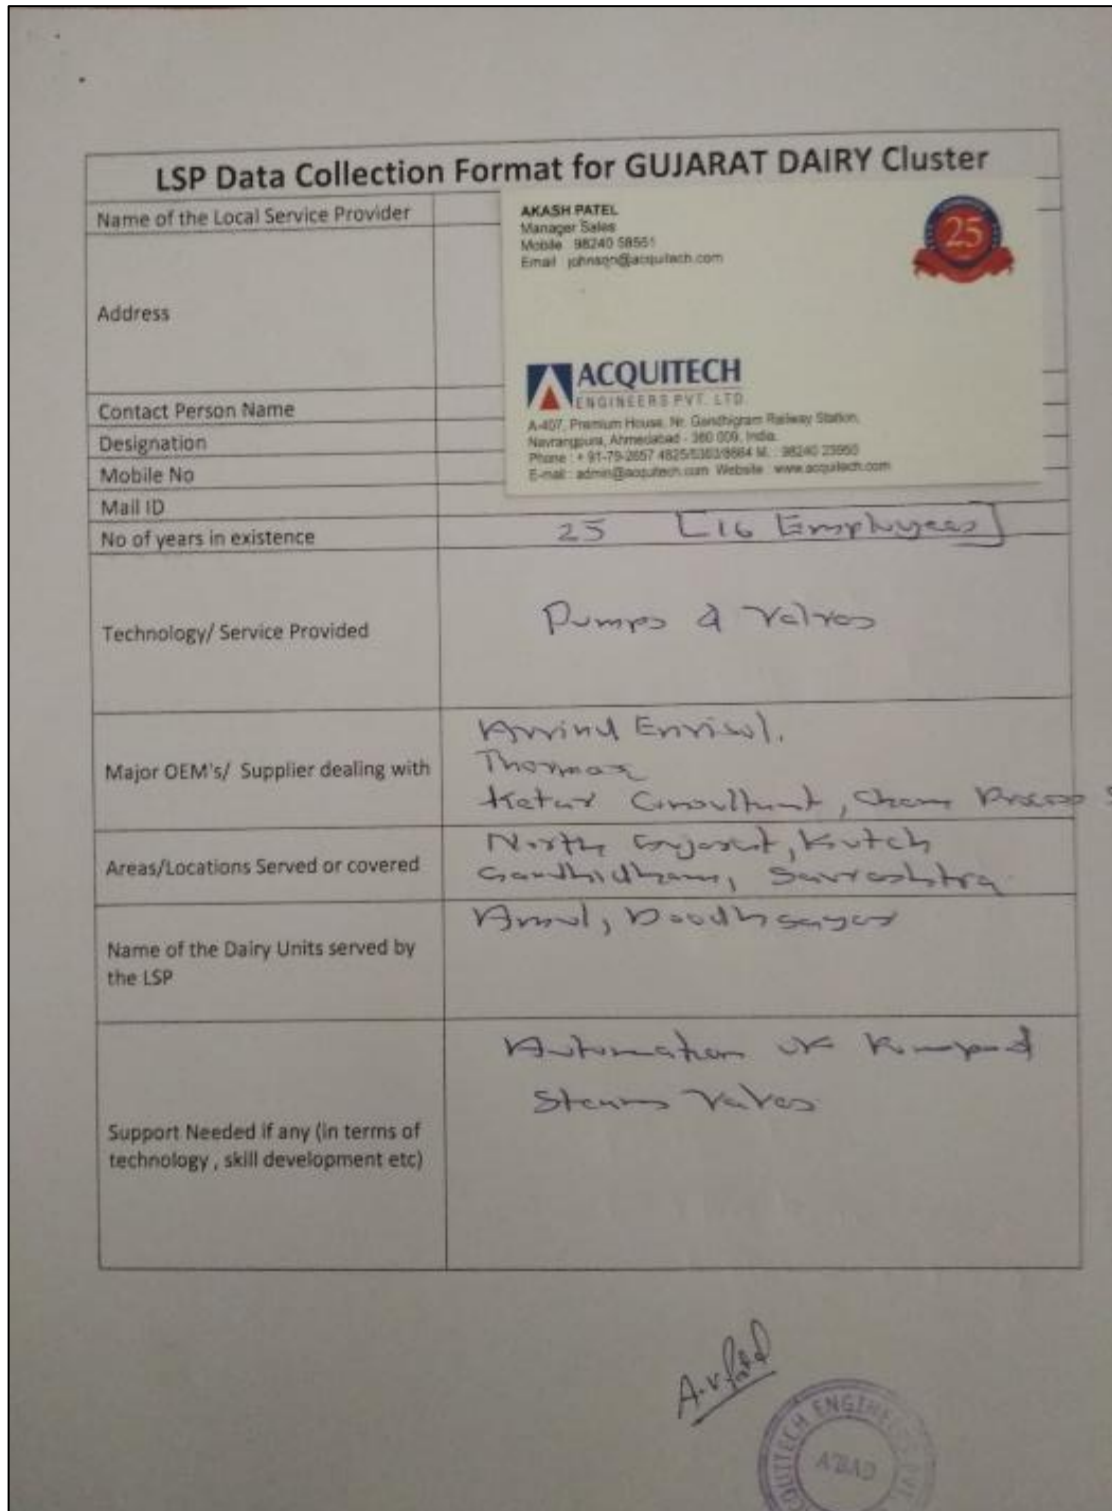 LSP Data Collection Format for GUJARAT DAIRY Cluster
Name of the Local Service Provider
AKASH PATEL
Manager Sales
Mobile : 98240 58551
Email : johnson@acquitech.com
25
Address
ACQUITECH
ENGINEERS PVT. LTD.
A-407, Premium House, Nr. Gandhigram Railway Station,
Navrangpura, Ahmedabad - 380 009, India.
Phone : + 91-79-2657 4825/5303/8664 M. : 98240 23950
E-mail : admin@acquitech.com Website : www.acquitech.com
Contact Person Name
Designation
Mobile No
Mail ID
No of years in existence
25 [16 Employees]
Technology/ Service Provided
Pumps & Valves
Major OEM's/ Supplier dealing with
Arvind Envisol.
Thermax
Consultant, Chem Process
Areas/Locations Served or covered
North Gujarat, Kutch
Gandhidham, Saurashtra
Name of the Dairy Units served by
the LSP
Amul, Doodhsagar
Support Needed if any (in terms of
technology , skill development etc)
Automation of Pump &
Steam Valves
A.V.Patel
ACQUITECH ENGINEERS PVT
A'BAD